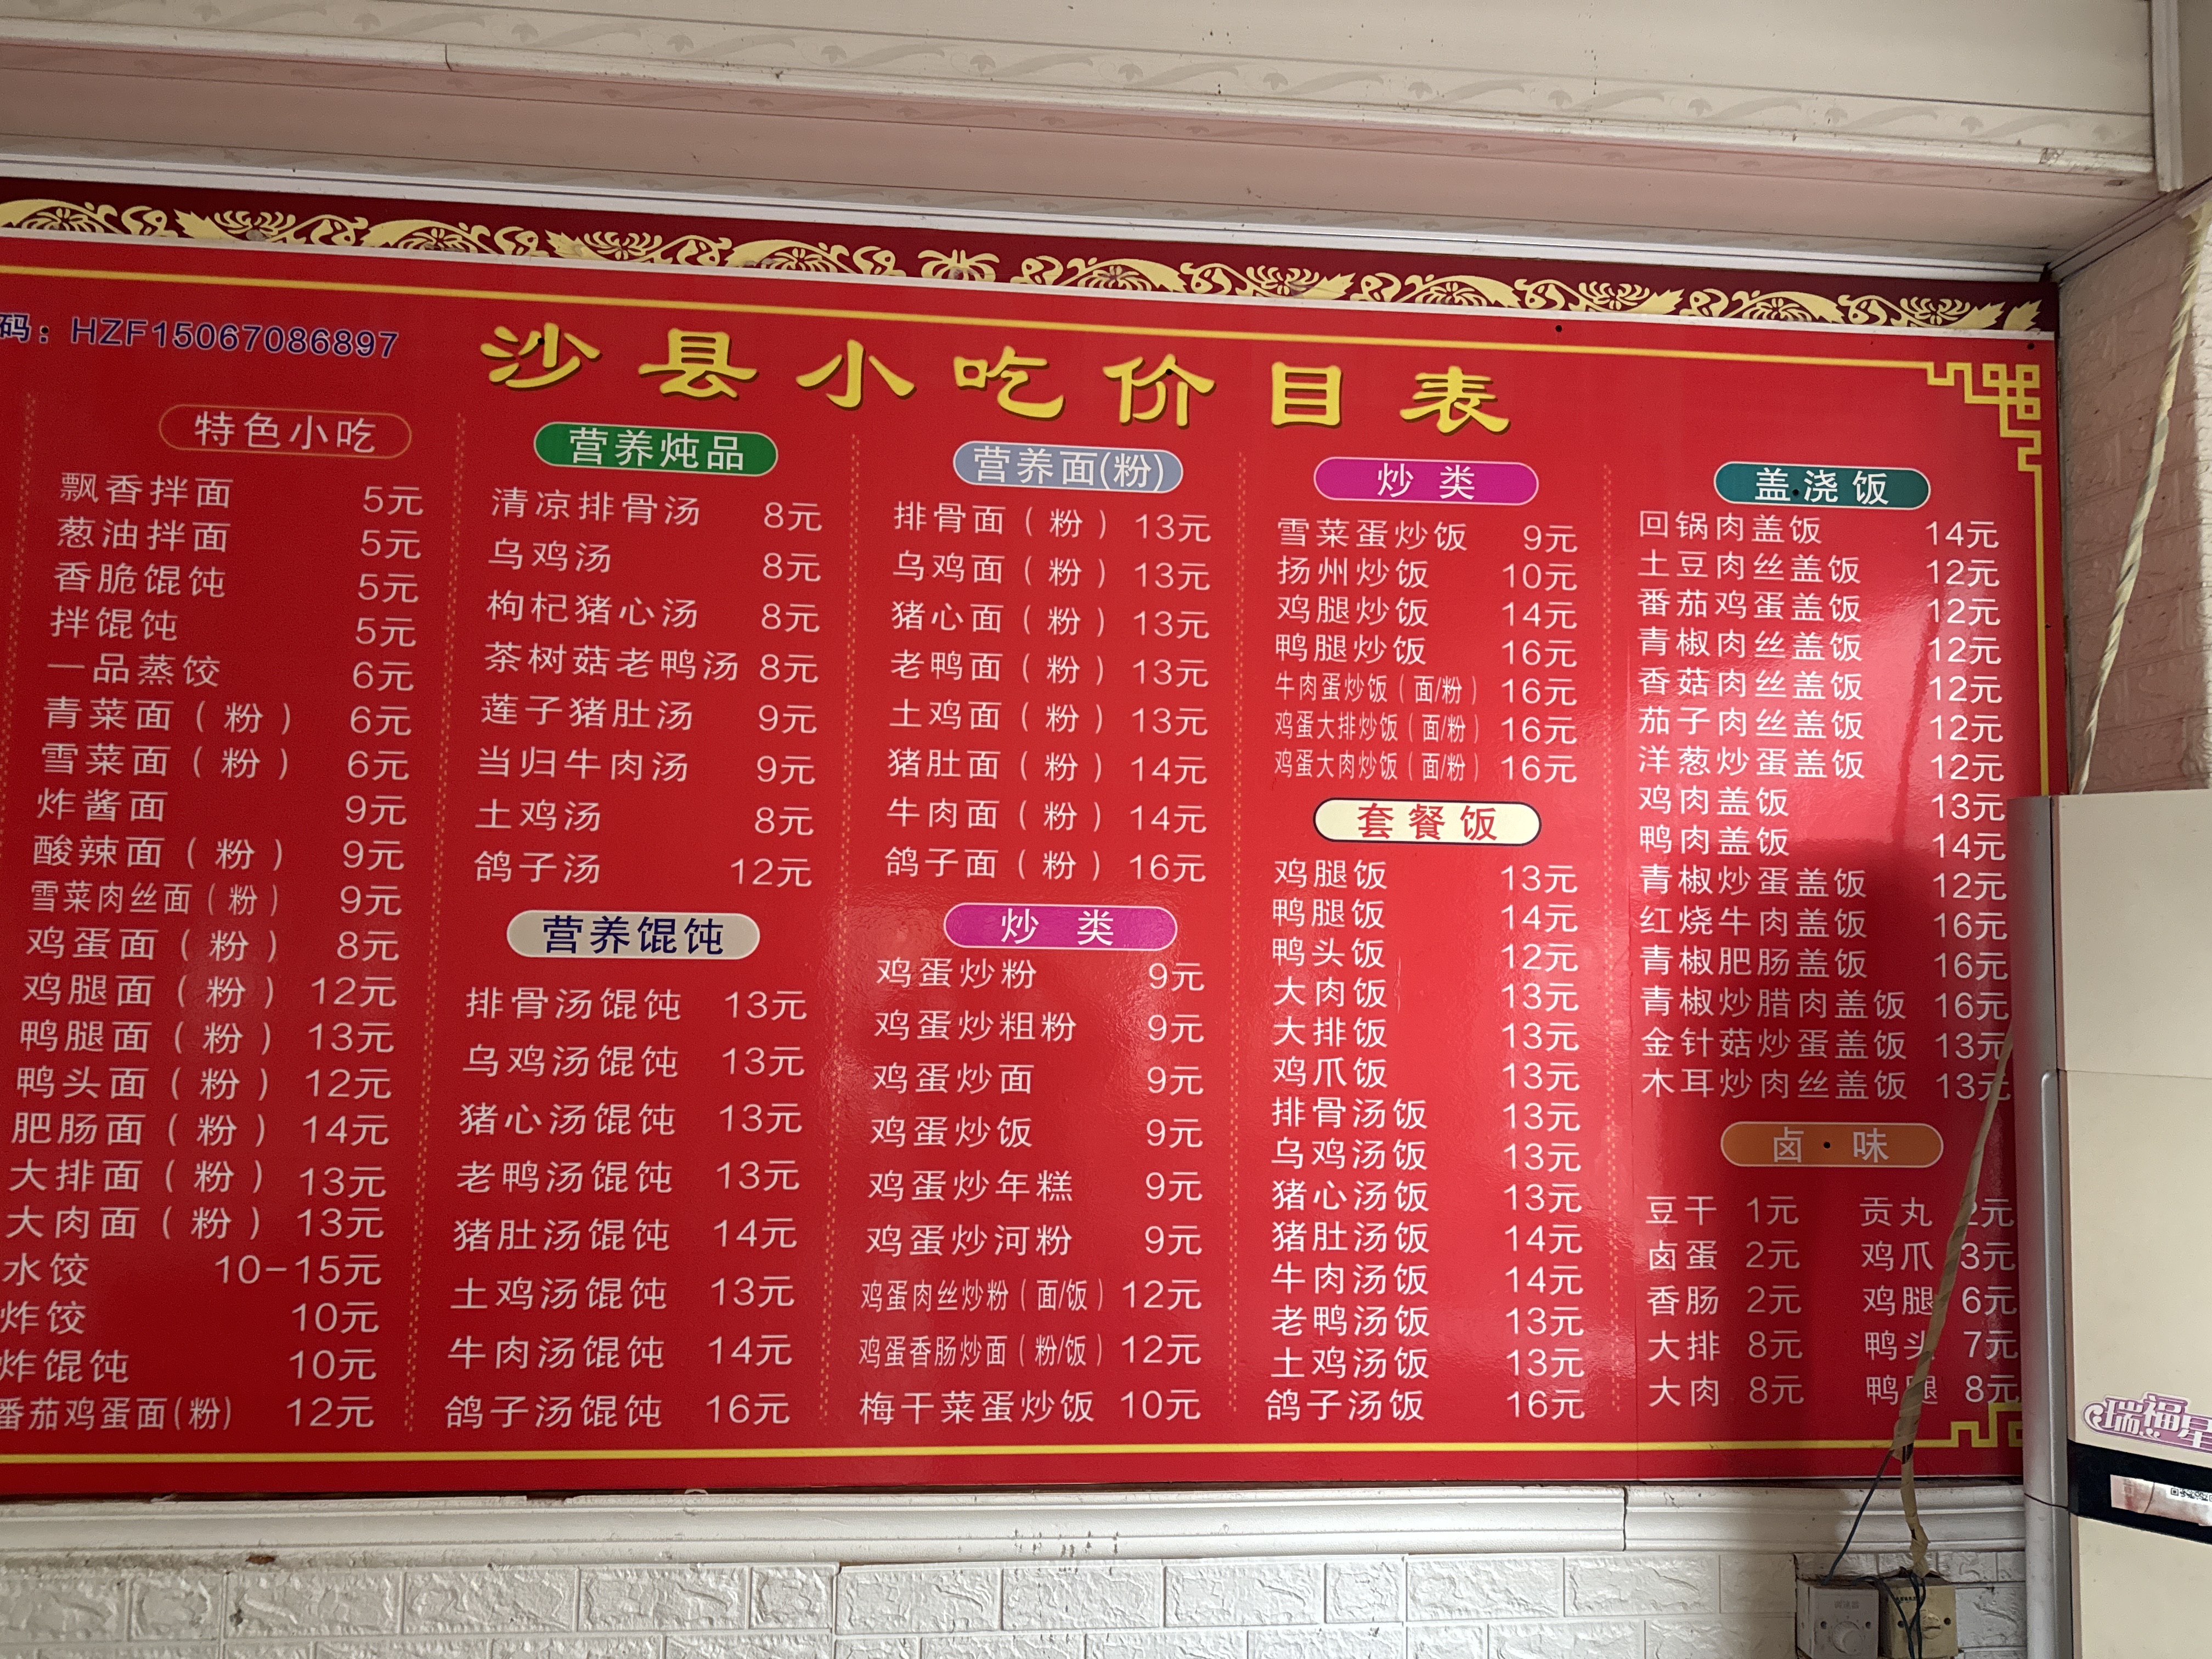 码：HZF15067086897
沙县小吃价目表
特色小吃
飘香拌面 5元
葱油拌面 5元
香脆馄饨 5元
拌馄饨 5元
一品蒸饺 6元
青菜面（粉） 6元
雪菜面（粉） 6元
炸酱面 9元
酸辣面（粉） 9元
雪菜肉丝面（粉） 9元
鸡蛋面（粉） 8元
鸡腿面（粉） 12元
鸭腿面（粉） 13元
鸭头面（粉） 12元
肥肠面（粉） 14元
大排面（粉） 13元
大肉面（粉） 13元
水饺 10-15元
炸饺 10元
炸馄饨 10元
番茄鸡蛋面(粉) 12元
营养炖品
清凉排骨汤 8元
乌鸡汤 8元
枸杞猪心汤 8元
茶树菇老鸭汤 8元
莲子猪肚汤 9元
当归牛肉汤 9元
土鸡汤 8元
鸽子汤 12元
营养馄饨
排骨汤馄饨 13元
乌鸡汤馄饨 13元
猪心汤馄饨 13元
老鸭汤馄饨 13元
猪肚汤馄饨 14元
土鸡汤馄饨 13元
牛肉汤馄饨 14元
鸽子汤馄饨 16元
营养面(粉)
排骨面（粉） 13元
乌鸡面（粉） 13元
猪心面（粉） 13元
老鸭面（粉） 13元
土鸡面（粉） 13元
猪肚面（粉） 14元
牛肉面（粉） 14元
鸽子面（粉） 16元
炒 类
鸡蛋炒粉 9元
鸡蛋炒粗粉 9元
鸡蛋炒面 9元
鸡蛋炒饭 9元
鸡蛋炒年糕 9元
鸡蛋炒河粉 9元
鸡蛋肉丝炒粉（面/饭） 12元
鸡蛋香肠炒面（粉/饭） 12元
梅干菜蛋炒饭 10元
炒 类
雪菜蛋炒饭 9元
扬州炒饭 10元
鸡腿炒饭 14元
鸭腿炒饭 16元
牛肉蛋炒饭（面/粉） 16元
鸡蛋大排炒饭（面/粉） 16元
鸡蛋大肉炒饭（面/粉） 16元
套餐饭
鸡腿饭 13元
鸭腿饭 14元
鸭头饭 12元
大肉饭 13元
大排饭 13元
鸡爪饭 13元
排骨汤饭 13元
乌鸡汤饭 13元
猪心汤饭 13元
猪肚汤饭 14元
牛肉汤饭 14元
老鸭汤饭 13元
土鸡汤饭 13元
鸽子汤饭 16元
盖浇饭
回锅肉盖饭 14元
土豆肉丝盖饭 12元
番茄鸡蛋盖饭 12元
青椒肉丝盖饭 12元
香菇肉丝盖饭 12元
茄子肉丝盖饭 12元
洋葱炒蛋盖饭 12元
鸡肉盖饭 13元
鸭肉盖饭 14元
青椒炒蛋盖饭 12元
红烧牛肉盖饭 16元
青椒肥肠盖饭 16元
青椒炒腊肉盖饭 16元
金针菇炒蛋盖饭 13元
木耳炒肉丝盖饭 13元
卤·味
豆干 1元 贡丸 2元
卤蛋 2元 鸡爪 3元
香肠 2元 鸡腿 6元
大排 8元 鸭头 7元
大肉 8元 鸭腿 8元
瑞福星